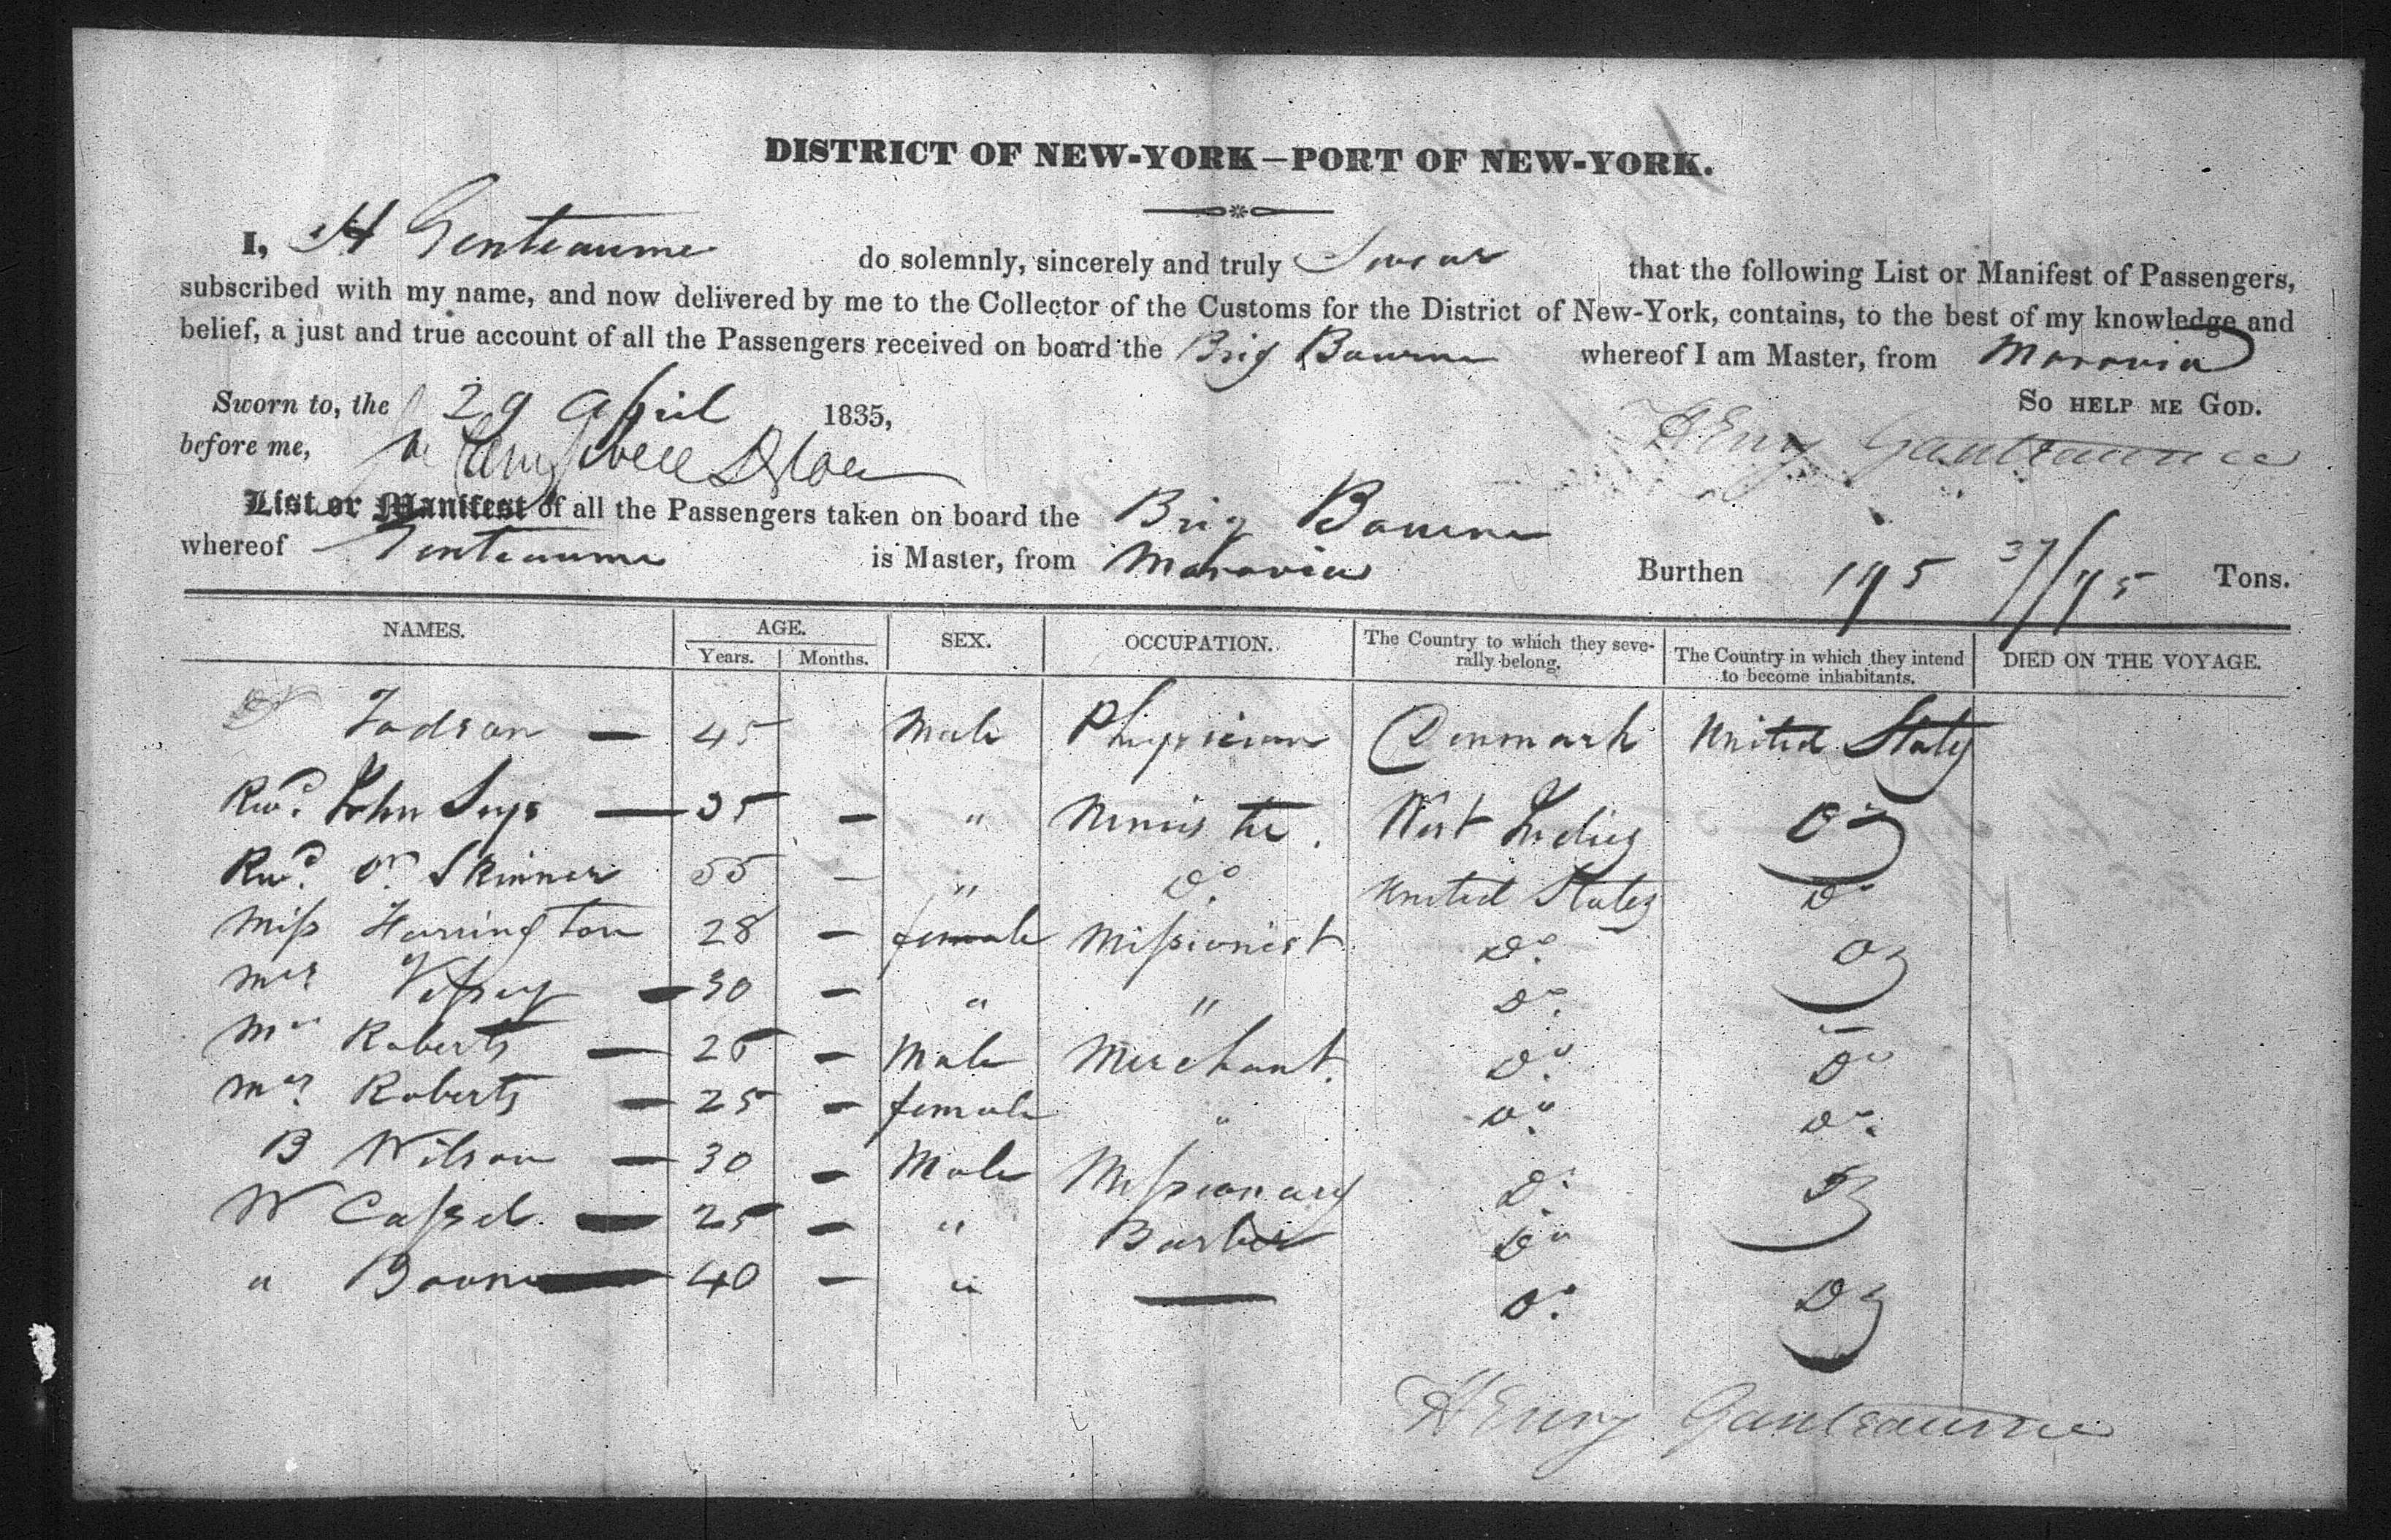 DISTRICT OF NEW-YORK—PORT OF NEW-YORK.
I, H Genteaume do solemnly, sincerely and truly Swear that the following List or Manifest of Passengers,
subscribed with my name, and now delivered by me to the Collector of the Customs for the District of New-York, contains, to the best of my knowledge and
belief, a just and true account of all the Passengers received on board the Brig Bourne whereof I am Master, from Moravia
Sworn to, the 29 April 1835, So HELP ME GOD.
before me, Henry Gauteaume
List or Manifest of all the Passengers taken on board the Brig Bourne
whereof Genteaume is Master, from Moravia Burthen 195 37/95 Tons.
NAMES. AGE. SEX. OCCUPATION. The Country to which they seve-rally belong. The Country in which they intend to become inhabitants. DIED ON THE VOYAGE.
Years. Months.
Dr Todson — 45 Male Physician Denmark United States
Revd. John Seys — 35 — " Minister. West Indies Do
Revd. Dr. Skinner 55 — " Do United States Do
Miss Harrington 28 — female Missionist Do. Do
Mrs — 30 — " " Do. Do
Mr Roberts — 25 — Male Merchant. Do. Do
Mrs Roberts — 25 — female " Do. Do.
B Wilson — 30 — Male Missionary Do. Do
W Cassel — 25 — " Barber Do Do
" — 40 — " — Do. Do
Henry Gauteaume